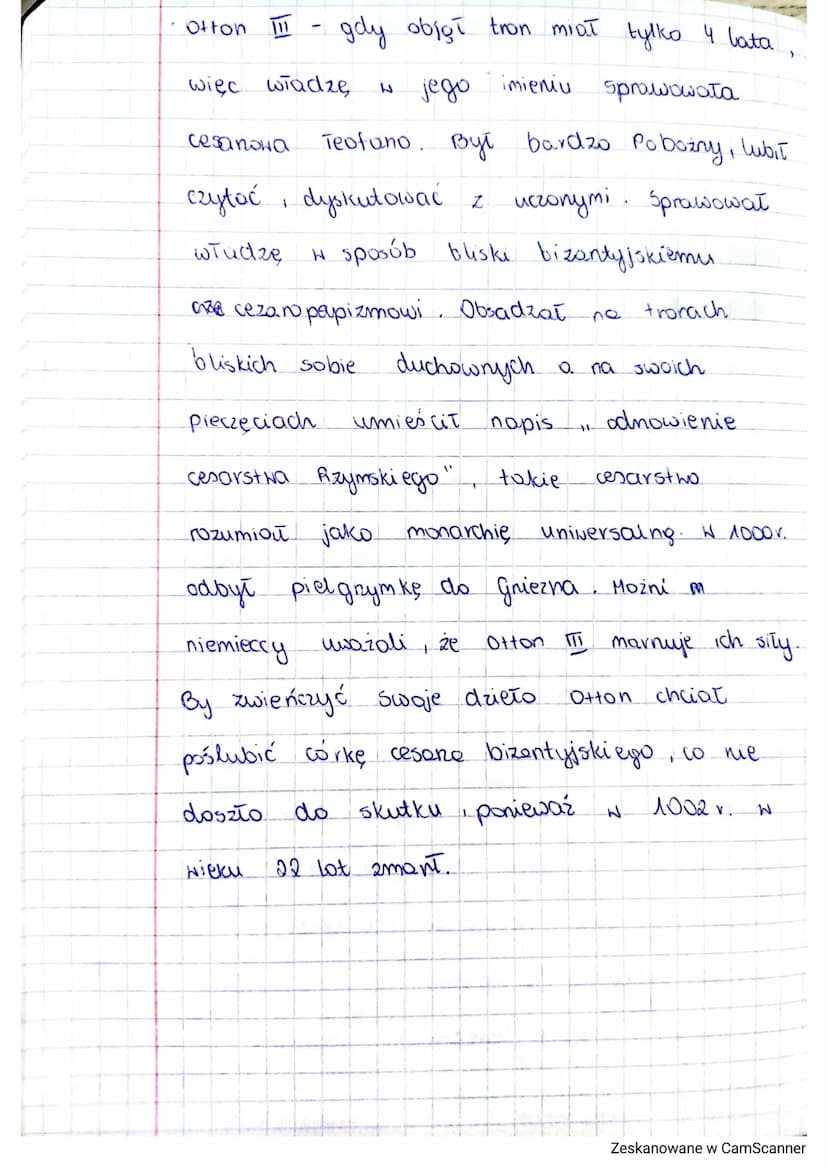 · Otton III - gdy objął tron miał tylko 4 lata,
więc władzę w jego imieniu sprawowała
cesarzowa Teofano. Był bardzo Pobożny, lubił
czytać, dyskutować z uczonymi. Sprawował
władzę w sposób bliski bizantyjskiemu
cezaropapizmowi. Obsadzał na tronach
bliskich sobie duchownych a na swoich
pieczęciach umieścił napis „odnowienie
cesarstwa Rzymskiego", takie cesarstwo
rozumiał jako monarchię uniwersalną. W 1000r.
odbył pielgrzymkę do Gniezna. Możni
niemieccy uważali, że Otton III marnuje ich siły.
By zwieńczyć swoje dzieło Otton chciał
poślubić córkę cesarza bizantyjskiego, co nie
doszło do skutku, ponieważ w 1002 r. w
wieku 22 lat zmarł.
Zeskanowane w CamScanner